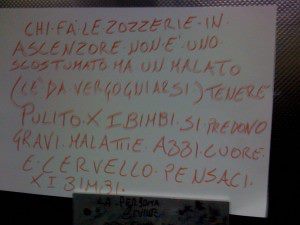 CHI·FÀ·LE·ZOZZERIE·IN
ASCENZORE·NON·E'·UNO
SCOSTUMATO MA·UN MALATO
(C'È·DA·VERGOGNIARSI) TENERE
PULITO·X·I BIMBI·SI·PREDONO
GRAVI·MALATTIE·ABBI·CUORE·
E·CERVELLO·PENSACI·
X I BIMBI·
LA·PERSONA